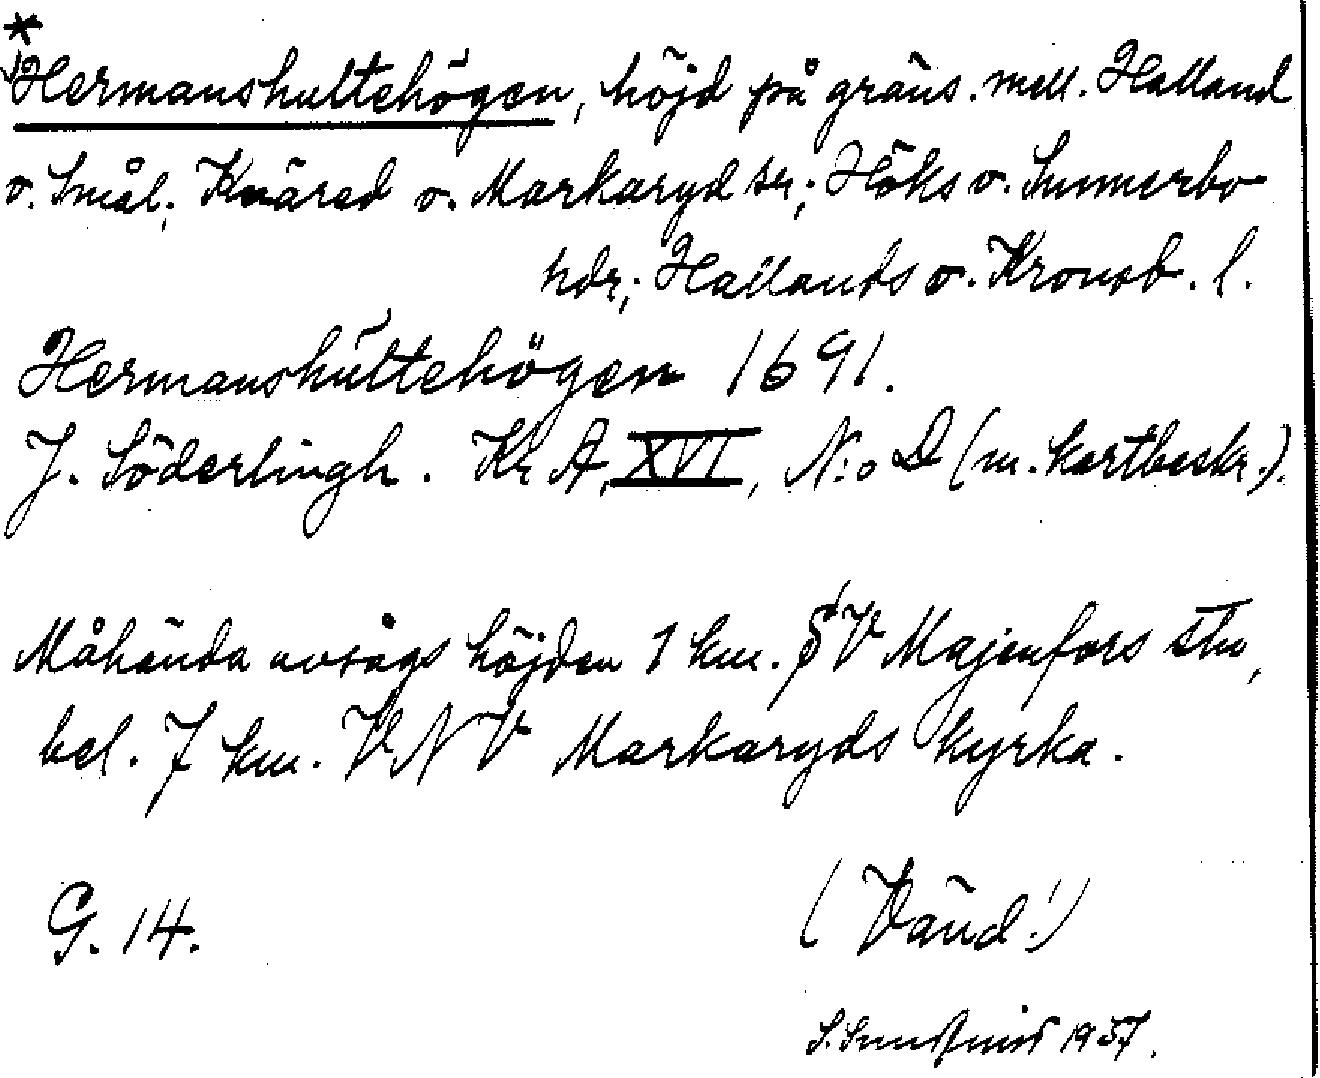 *
Hermanshultehögen, höjd på gräns. mell. Halland
o. Smål; Knäred o. Markaryd sn; Höks o. Sunnerbo
hdr; Hallands o. Kronob. l.
Hermanshultehögen 1691.
J. Söderlingh. Kr A, XVI, N:o D (m. kartbeskr.).
Måhända avsågs höjden 1 km. V Majenfors stn,
bel. 7 km. VNV Markaryds kyrka.
G. 14.
(Vänd!)
S. 1957.